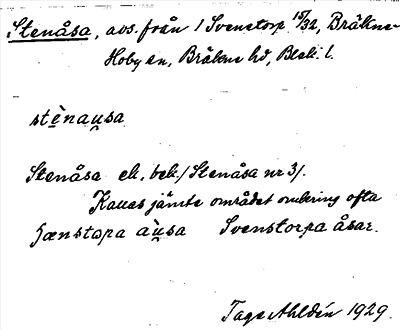 Stenåsa, avs. från 1 Svenstorp 15/32, Bräkne-
Hoby sn, Bräkne hd, Blek. l.
stènau̯sa
Stenåsa ek. bek. /Stenåsa nr 3/.
Kallas jämte området omkring ofta
àu̯sa Svenstorpa åsar.
Tage Ahldén 1929.